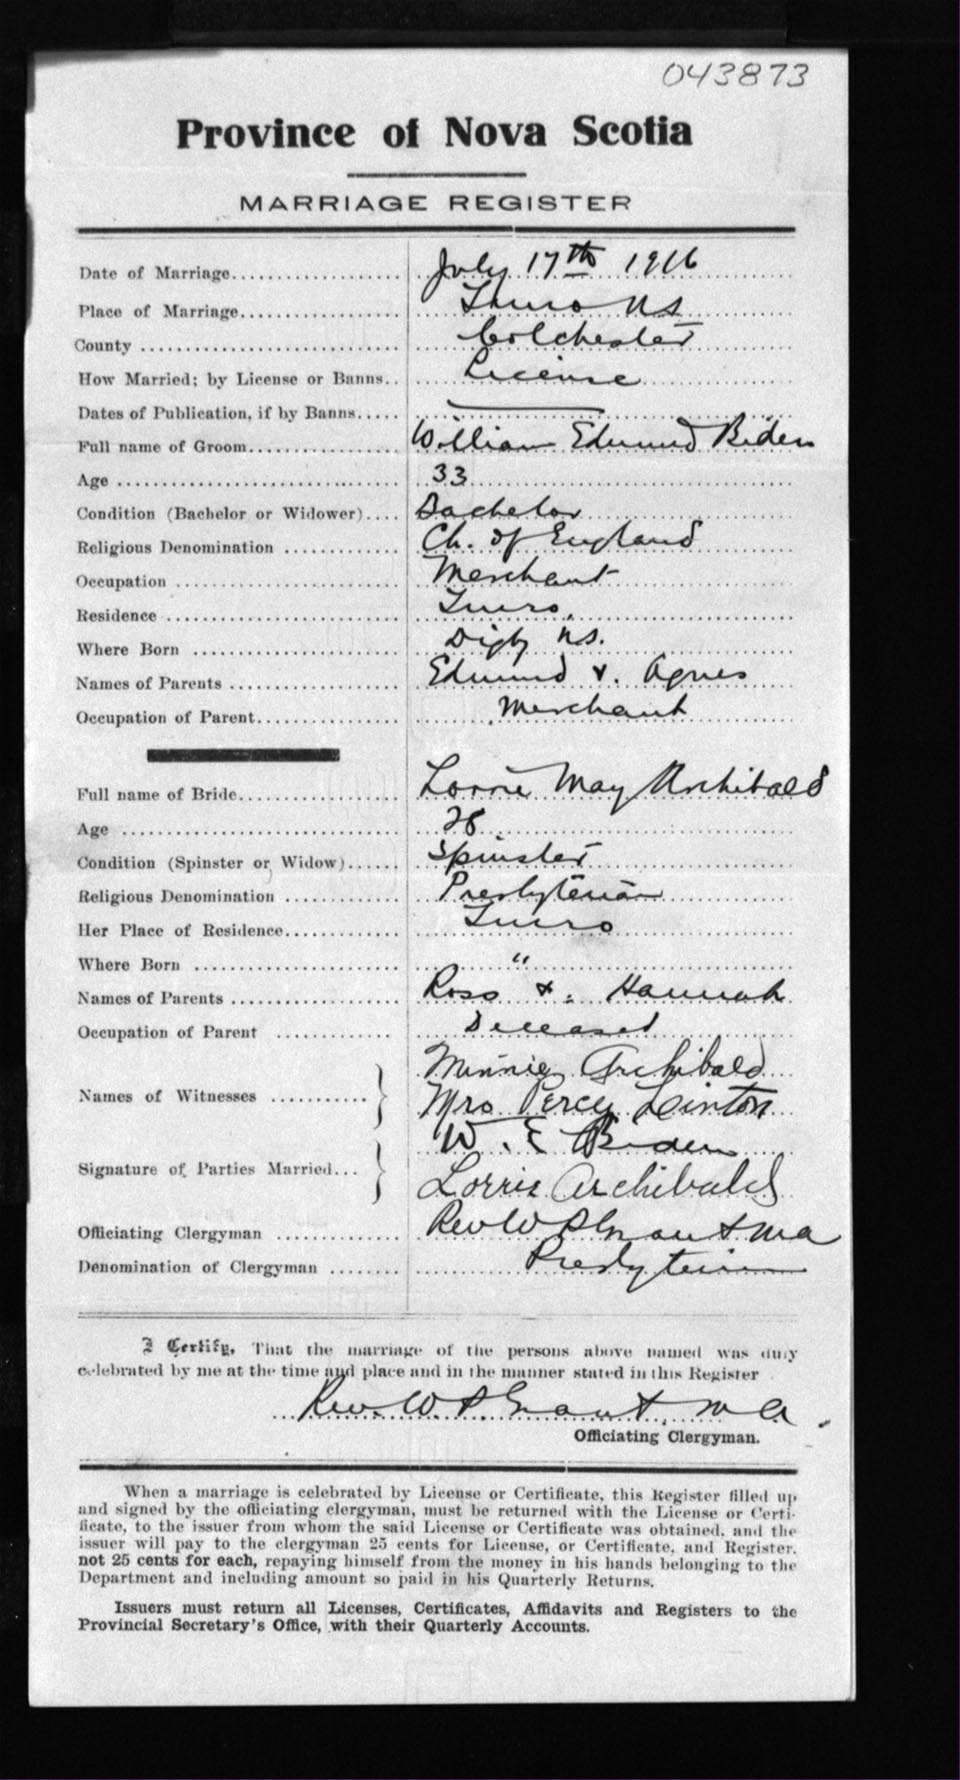 043873
Province of Nova Scotia
MARRIAGE REGISTER
Date of Marriage.................... July 17th 1916
Place of Marriage................... Truro NS
County .............................. Colchester
How Married; by License or Banns.. License
Dates of Publication, if by Banns.....
Full name of Groom.................. William Edmund Biden
Age .................................. 33
Condition (Bachelor or Widower).... Bachelor
Religious Denomination ............. Ch. of England
Occupation .......................... Merchant
Residence ........................... Truro.
Where Born ......................... Digby NS.
Names of Parents .................... Edmund &. Agnes
Occupation of Parent................. Merchant
Full name of Bride................... Lorrie May Archibald
Age ..................................
Condition (Spinster or Widow)...... Spinster
Religious Denomination .............. Presbyterian
Her Place of Residence............... Truro
Where Born ......................... "
Names of Parents .................... Ross &. Hannah
Occupation of Parent ............. Deceased
Minnie Archibald
Names of Witnesses ........... Mrs Percy Linton
W. E Biden
Signature of Parties Married...
Lorrie Archibald
Officiating Clergyman .............. Rev W P Grant MA
Denomination of Clergyman ........ Presbyterian
I Certify, That the marriage of the persons above named was duly
celebrated by me at the time and place and in the manner stated in this Register
Rev. W. P. Grant, M A.
Officiating Clergyman.
When a marriage is celebrated by License or Certificate, this Register filled up
and signed by the officiating clergyman, must be returned with the License or Certi-
ficate, to the issuer from whom the said License or Certificate was obtained, and the
issuer will pay to the clergyman 25 cents for License, or Certificate, and Register,
not 25 cents for each, repaying himself from the money in his hands belonging to the
Department and including amount so paid in his Quarterly Returns.
Issuers must return all Licenses, Certificates, Affidavits and Registers to the
Provincial Secretary's Office, with their Quarterly Accounts.